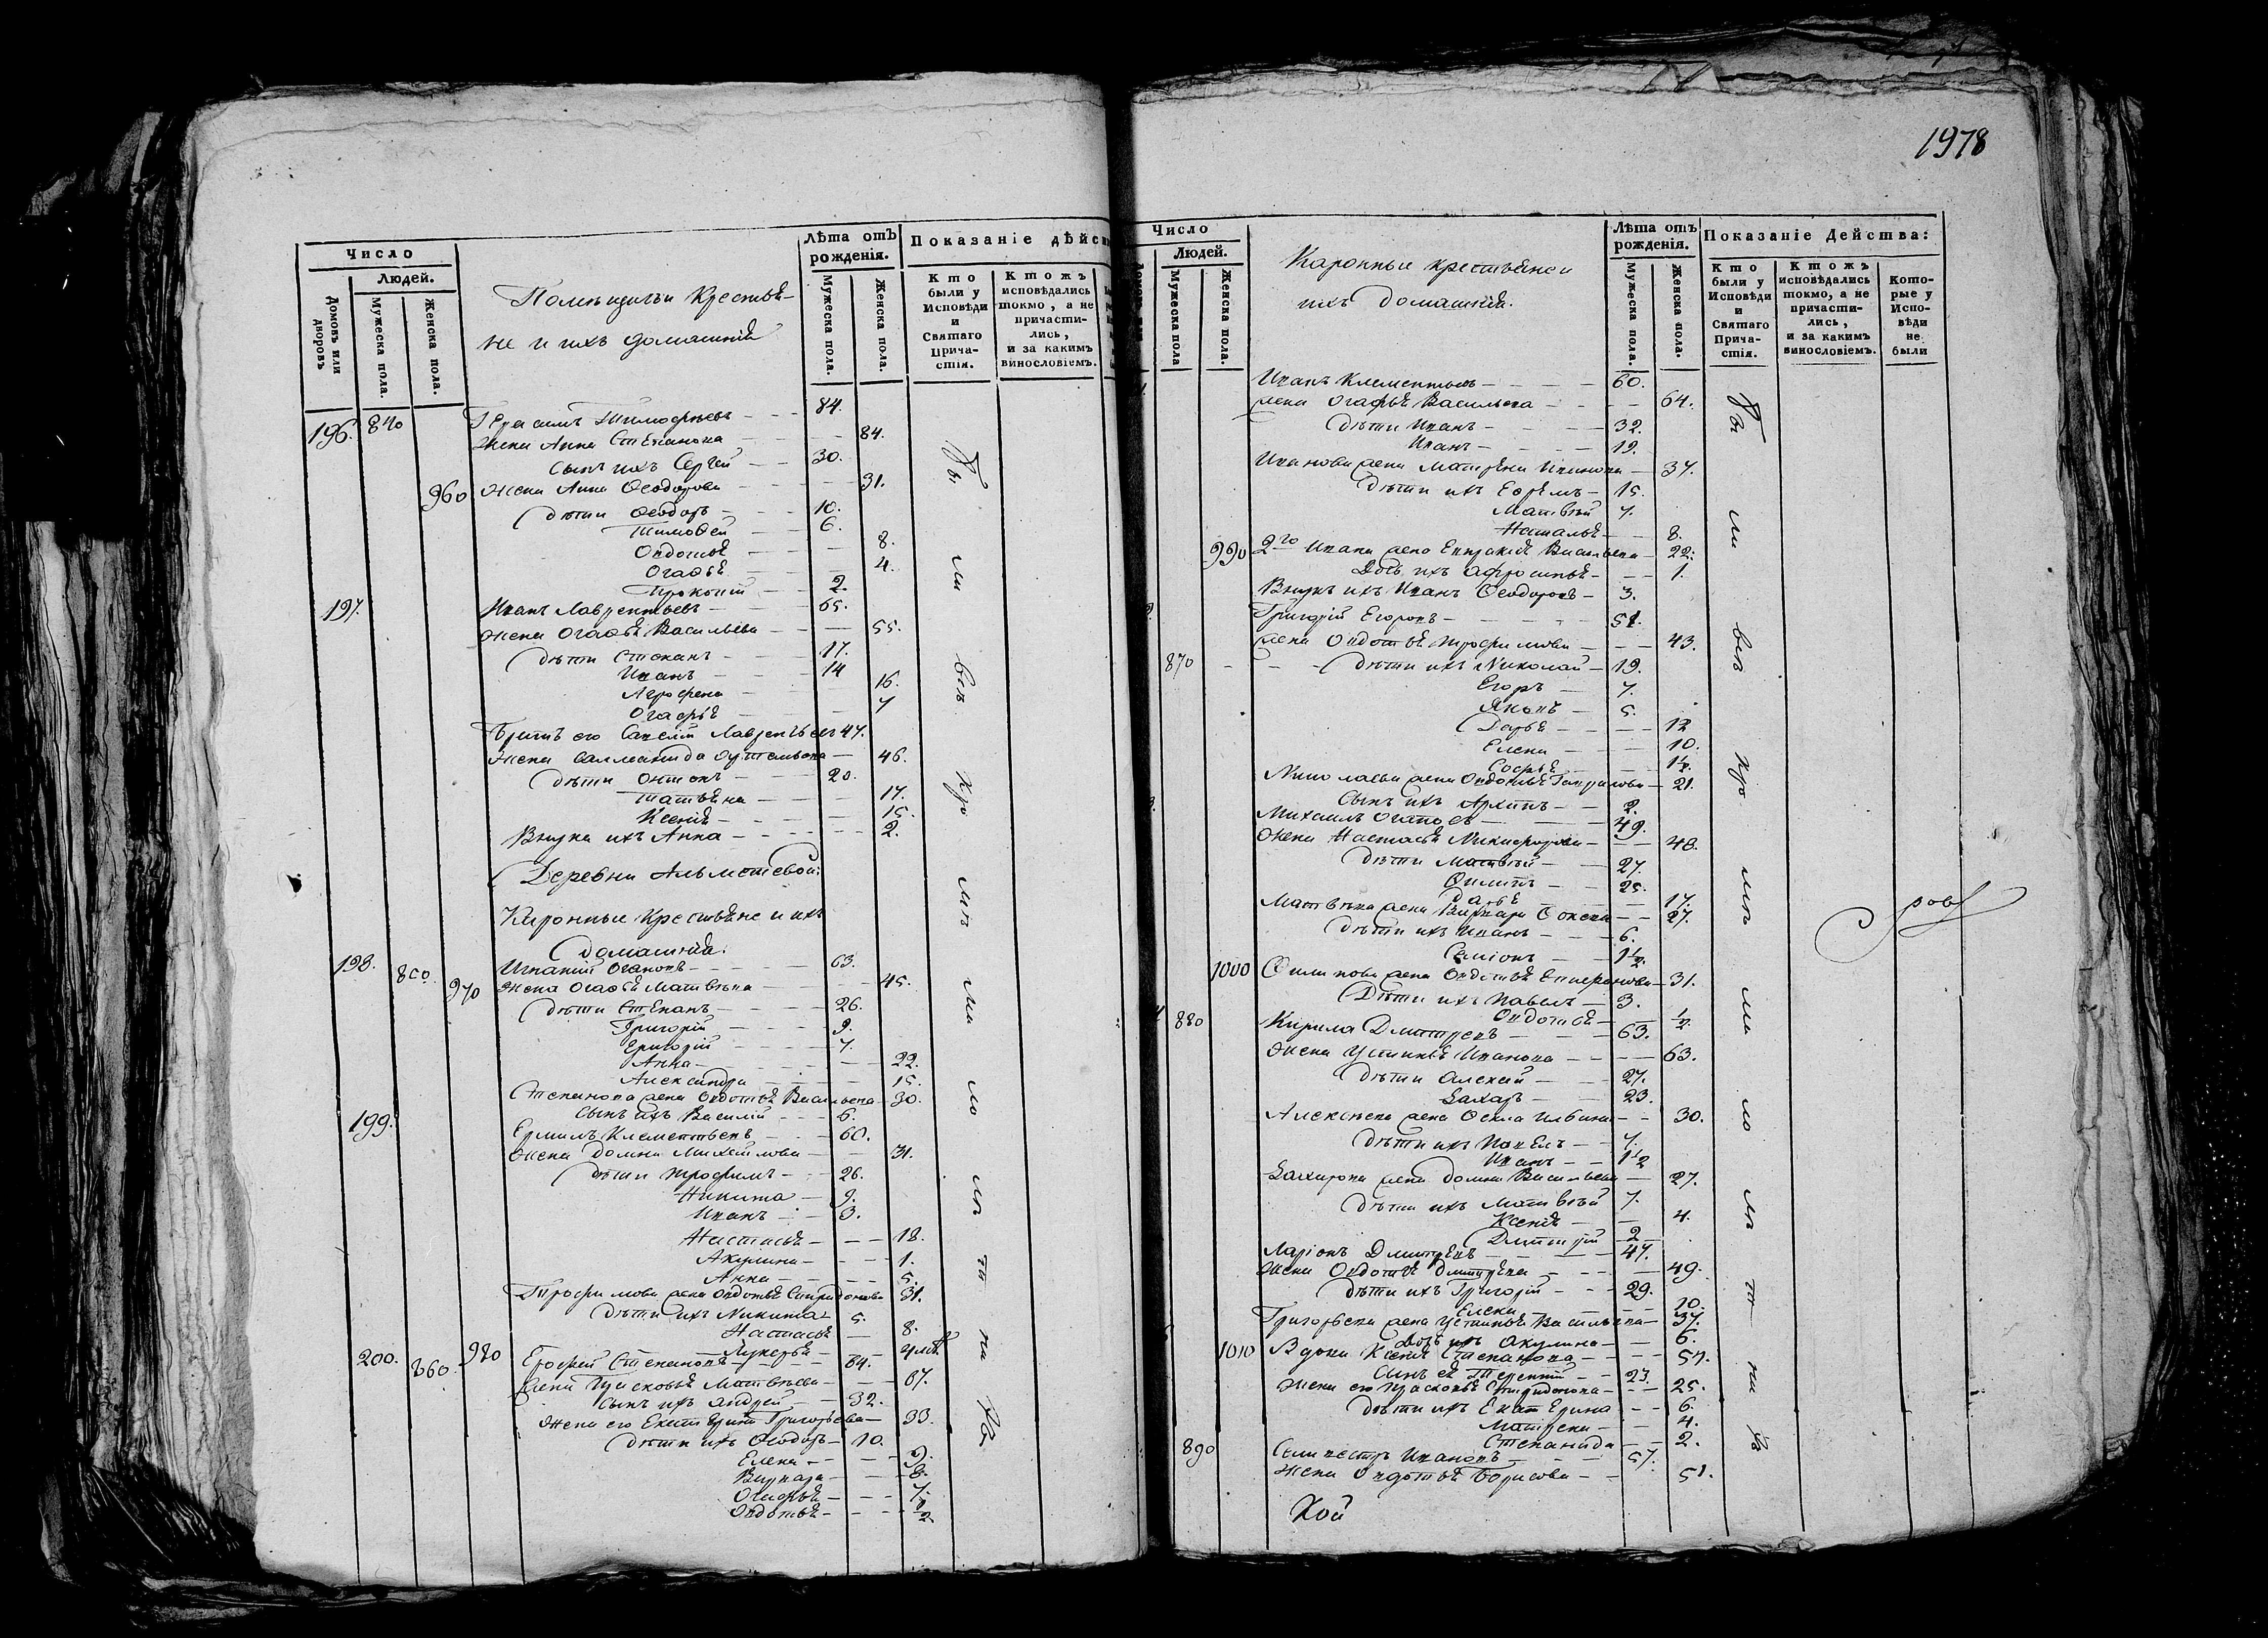 1978
Число
Людей.
Домовъ или дворовъ
Мужеска пола.
Женска пола.
Помѣщичьи Крестья-
не и ихъ домашнія
Лѣта отъ рожденія.
Мужеска пола.
Женска пола.
Показаніе дѣйс
Кто были у Исповѣди и Святаго Прича-стія.
Ктожъ исповѣдались токмо, а не причасти-лись, и за какимъ винословіемъ.
196. 840 Герасимъ Тимофѣевъ 84.
Жена Анна Степанова 84.
Сынъ ихъ Сергей 30.
960 Жена Анна Ѳеодорова 31.
Дѣти Ѳеодоръ 10.
Тимоѳей 6.
Овдотья 8.
Огафья 4.
Прокопій 2.
197. Иванъ Лаврентьевъ 65.
Жена Огафья Васильева 55.
Дѣти Степанъ 17.
Иванъ 14
Агрофена 16.
Огафья 7
Братъ его Савелій Лаврентьевъ 47.
Жена 46.
Дѣти Онтонъ 20.
Татьяна 17.
Ксенія 15.
Внука ихъ Анна 2.
Деревни Альметевой:
Каронные Крестьяне и ихъ
домашнія.
198. 850. Игнатій 63.
970 Жена Огафья Матвѣева 45.
Дѣти Степанъ 26.
Григорій 9.
Григорій 7.
Анна 22.
Александра 15.
Степанова жена Овдотья Васильева 30.
Сынъ ихъ Василій 6.
199. Ермилъ Клементьевъ 60.
Жена Домна Михайлова 31.
Дѣти Трофимъ 26.
Никита 9.
Иванъ 3.
Настасья 18.
Акулина 1.
Анна 5.
Трофимова жена Овдотья Спиридонова 31.
Дѣти ихъ Никита 5.
Настасья 8.
980 Лукерья
200. 860. Ерофей Степановъ 64.
Жена Прасковья Матвѣева 67.
Сынъ ихъ Андрей 32.
Жена его Екатерина Григорьева 33.
Дѣти ихъ Ѳеодоръ 10.
Елена 9.
Варвара 8.
Огафья 7.
Овдотья 1/2
Число
Людей.
Мужеска пола
Женска пола.
Каронные крестьяне и
ихъ домашнія.
Лѣта отъ рожденія.
Мужеска пола.
Женска пола.
Показаніе Действа:
Кто были у Исповѣди и Святаго Прича-стія.
Ктожъ исповѣдались токмо, а не причасти-лись, и за какимъ винословіемъ.
Кото-рые у Испо-вѣди не были
Иванъ Клементьевъ 60.
жена Огафья Васильева 64.
Дѣти Иванъ 32.
Иванъ 19.
Иванова жена Матрена 37.
Дѣти ихъ Ефремъ 15.
Матвѣй 7.
Наталья 8.
990 2го Ивана жена Евпраксія Васильева 22.
Дочь ихъ Афросинья 1.
Внукъ ихъ Иванъ Ѳеодоровъ 3.
Григорій Егоровъ 51.
жена Овдотья Трофимова 43.
870 Дѣти ихъ Николай 19.
Егоръ 7.
Яковъ 5.
Дарья 12
Елена 10.
Софья 1 1/2.
Николаева жена Овдотья Гаврилова 21.
Сынъ ихъ Архипъ 2.
Михаилъ 49.
Жена Настасья Никифорова 48.
Дѣти Матвѣй 27.
Филипъ 25.
Дарья 17.
Матвѣева жена Варвара 27.
Дѣти ихъ Иванъ 6.
Семіонъ 1 1/2
1000 Филипова жена Овдотья 31.
Дѣти ихъ Павелъ 3.
Овдотья 1/2
880 Кирила Дмитревъ 63.
Жена Устинья Иванова 63.
Дѣти Алексей 27.
Захаръ 23.
Алексѣева жена Ѳекла Ильина 30.
Дѣти ихъ Павелъ 7.
Иванъ 1 1/2
Захарова жена Домна Васильева 27.
Дѣти ихъ Матвѣй 7.
Ксенія 4.
Дмитрій 2
Ларіонъ Дмитревъ 47.
Жена Овдотья Дмитрева 49.
Дѣти ихъ Григорій 29.
Елена 10.
Григорьева жена Устинья Васильева 37.
Дочь ихъ Акулина 6.
1010 Вдова Ксенія Степанова 57.
Сынъ ея Терентій 23.
Жена его Прасковья Спиридонова 25.
Дѣти ихъ Екатерина 6
Матрена 4.
Степанида 2.
890 Селивестръ Ивановъ 57.
Жена Овдотья Борисова 51.